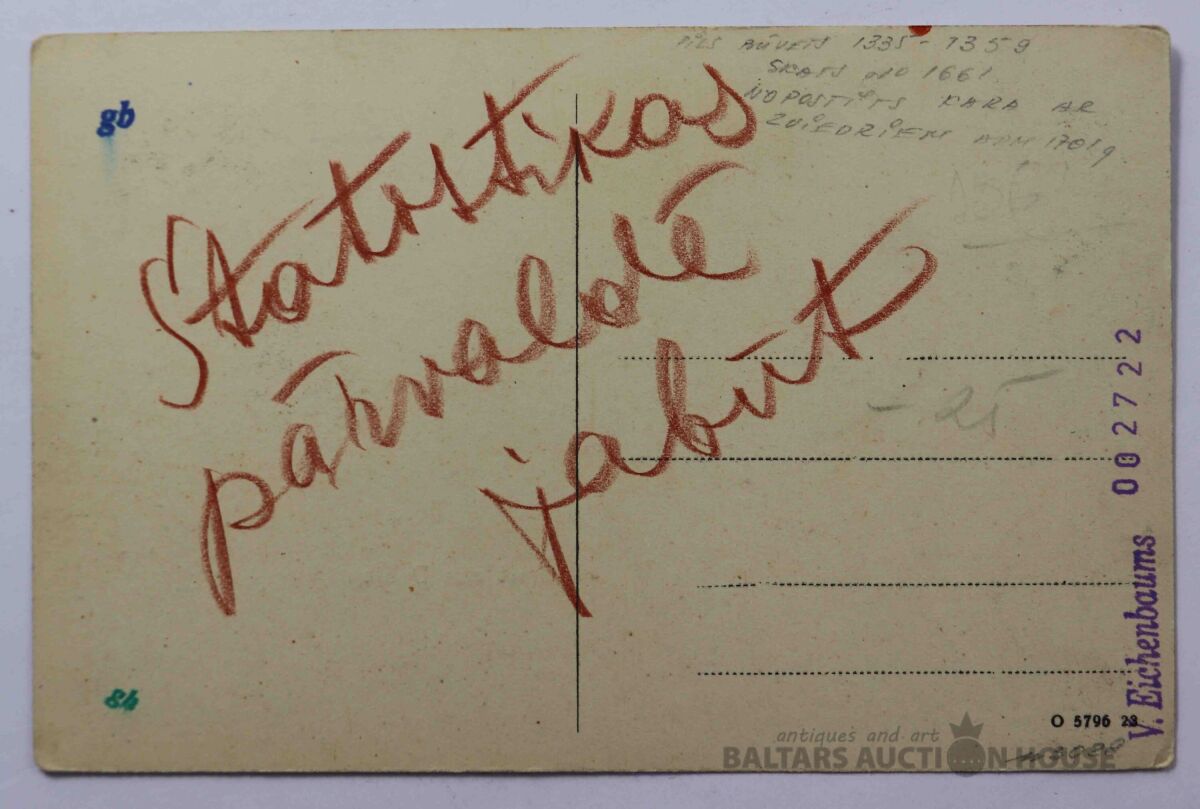 PILS BŪVĒTS 1335 - 1359
SKATS NO 1661
NOPOSTĪTS KARA AR
ZVIEDRIEM 1701g
gb
Statistikas
pārvaldē
jabūt
- 25
84
00 27 722
V. Eichenbaums
O 5796 23
antiques and art
BALTARS AUCTION HOUSE